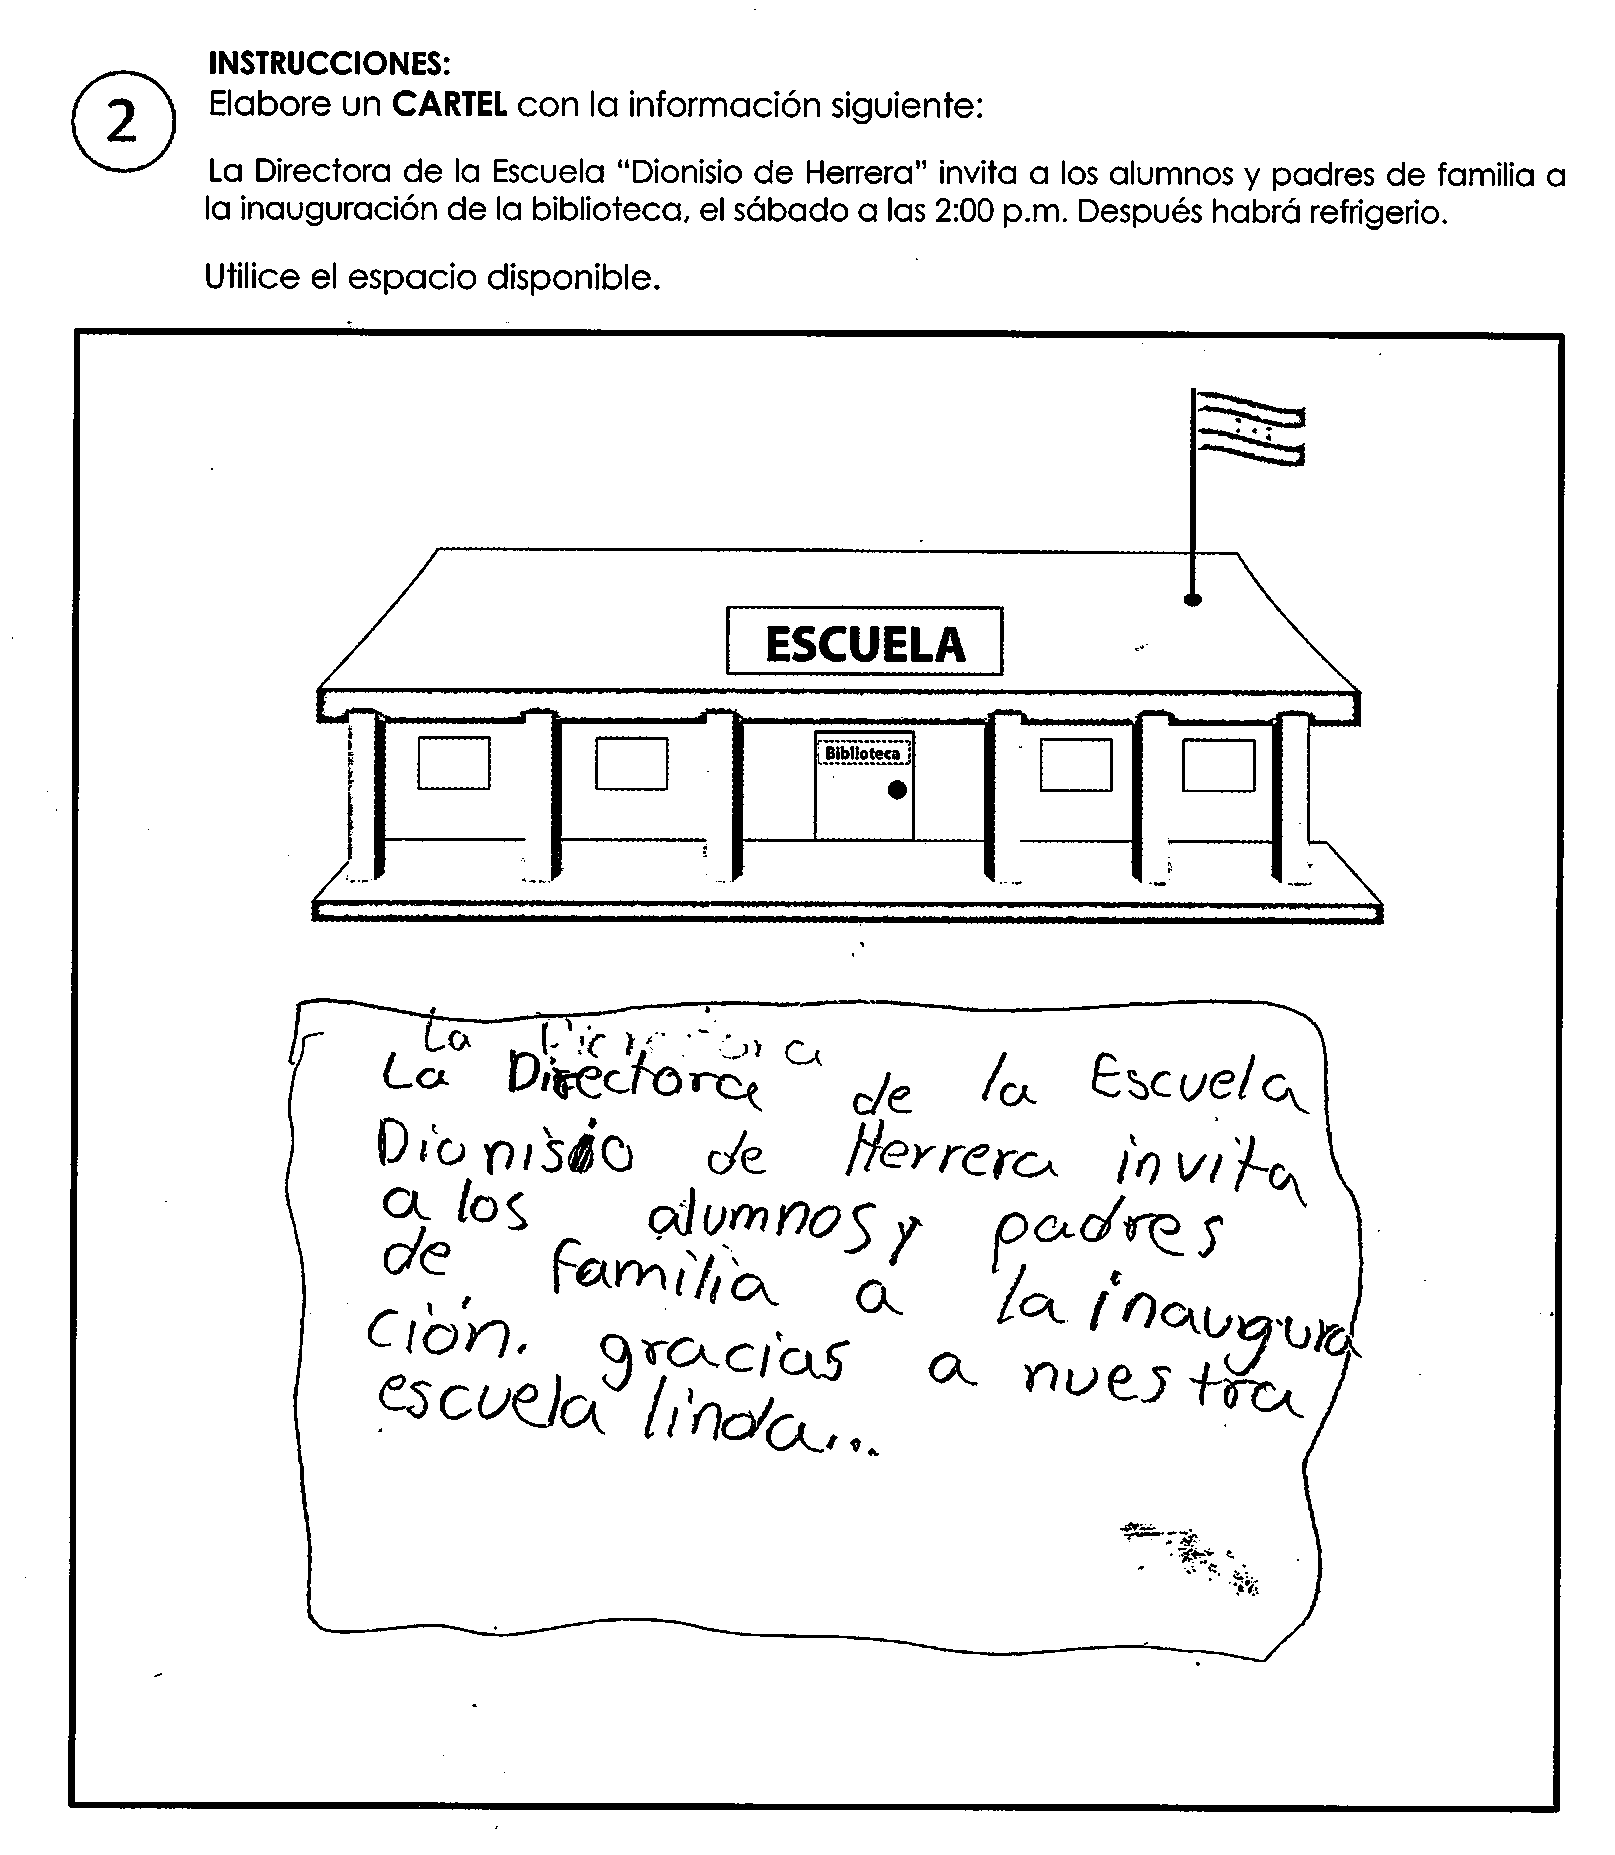 INSTRUCCIONES:
2
Elabore un CARTEL con la información siguiente:
La Directora de la Escuela “Dionisio de Herrera” invita a los alumnos y padres de familia a
la inauguración de la biblioteca, el sábado a las 2:00 p.m. Después habrá refrigerio.
Utilice el espacio disponible.
ESCUELA
Biblioteca
La Directora
La Directora de la Escuela
Dionisio de Herrera invita
a los alumnos y padres
de familia a la inaugura
ción. gracias a nuestra
escuela linda...